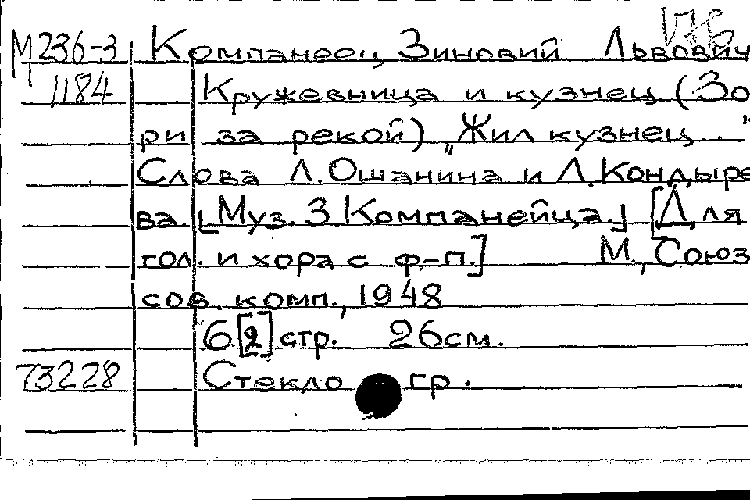 М236-3 Компанеец, Зиновий Львович
1184 Кружевница и кузнец (Зо
ри за рекой) „Жил кузнец..."
Слова Л. Ошанина и Л. Кондыре
ва [Муз. З. Компанейца.] [Для
гол. и хора с ф-п.] М., Союз
сов. комп., 1948
6 [2] стр. 26 см.
73228 Стекло гр.